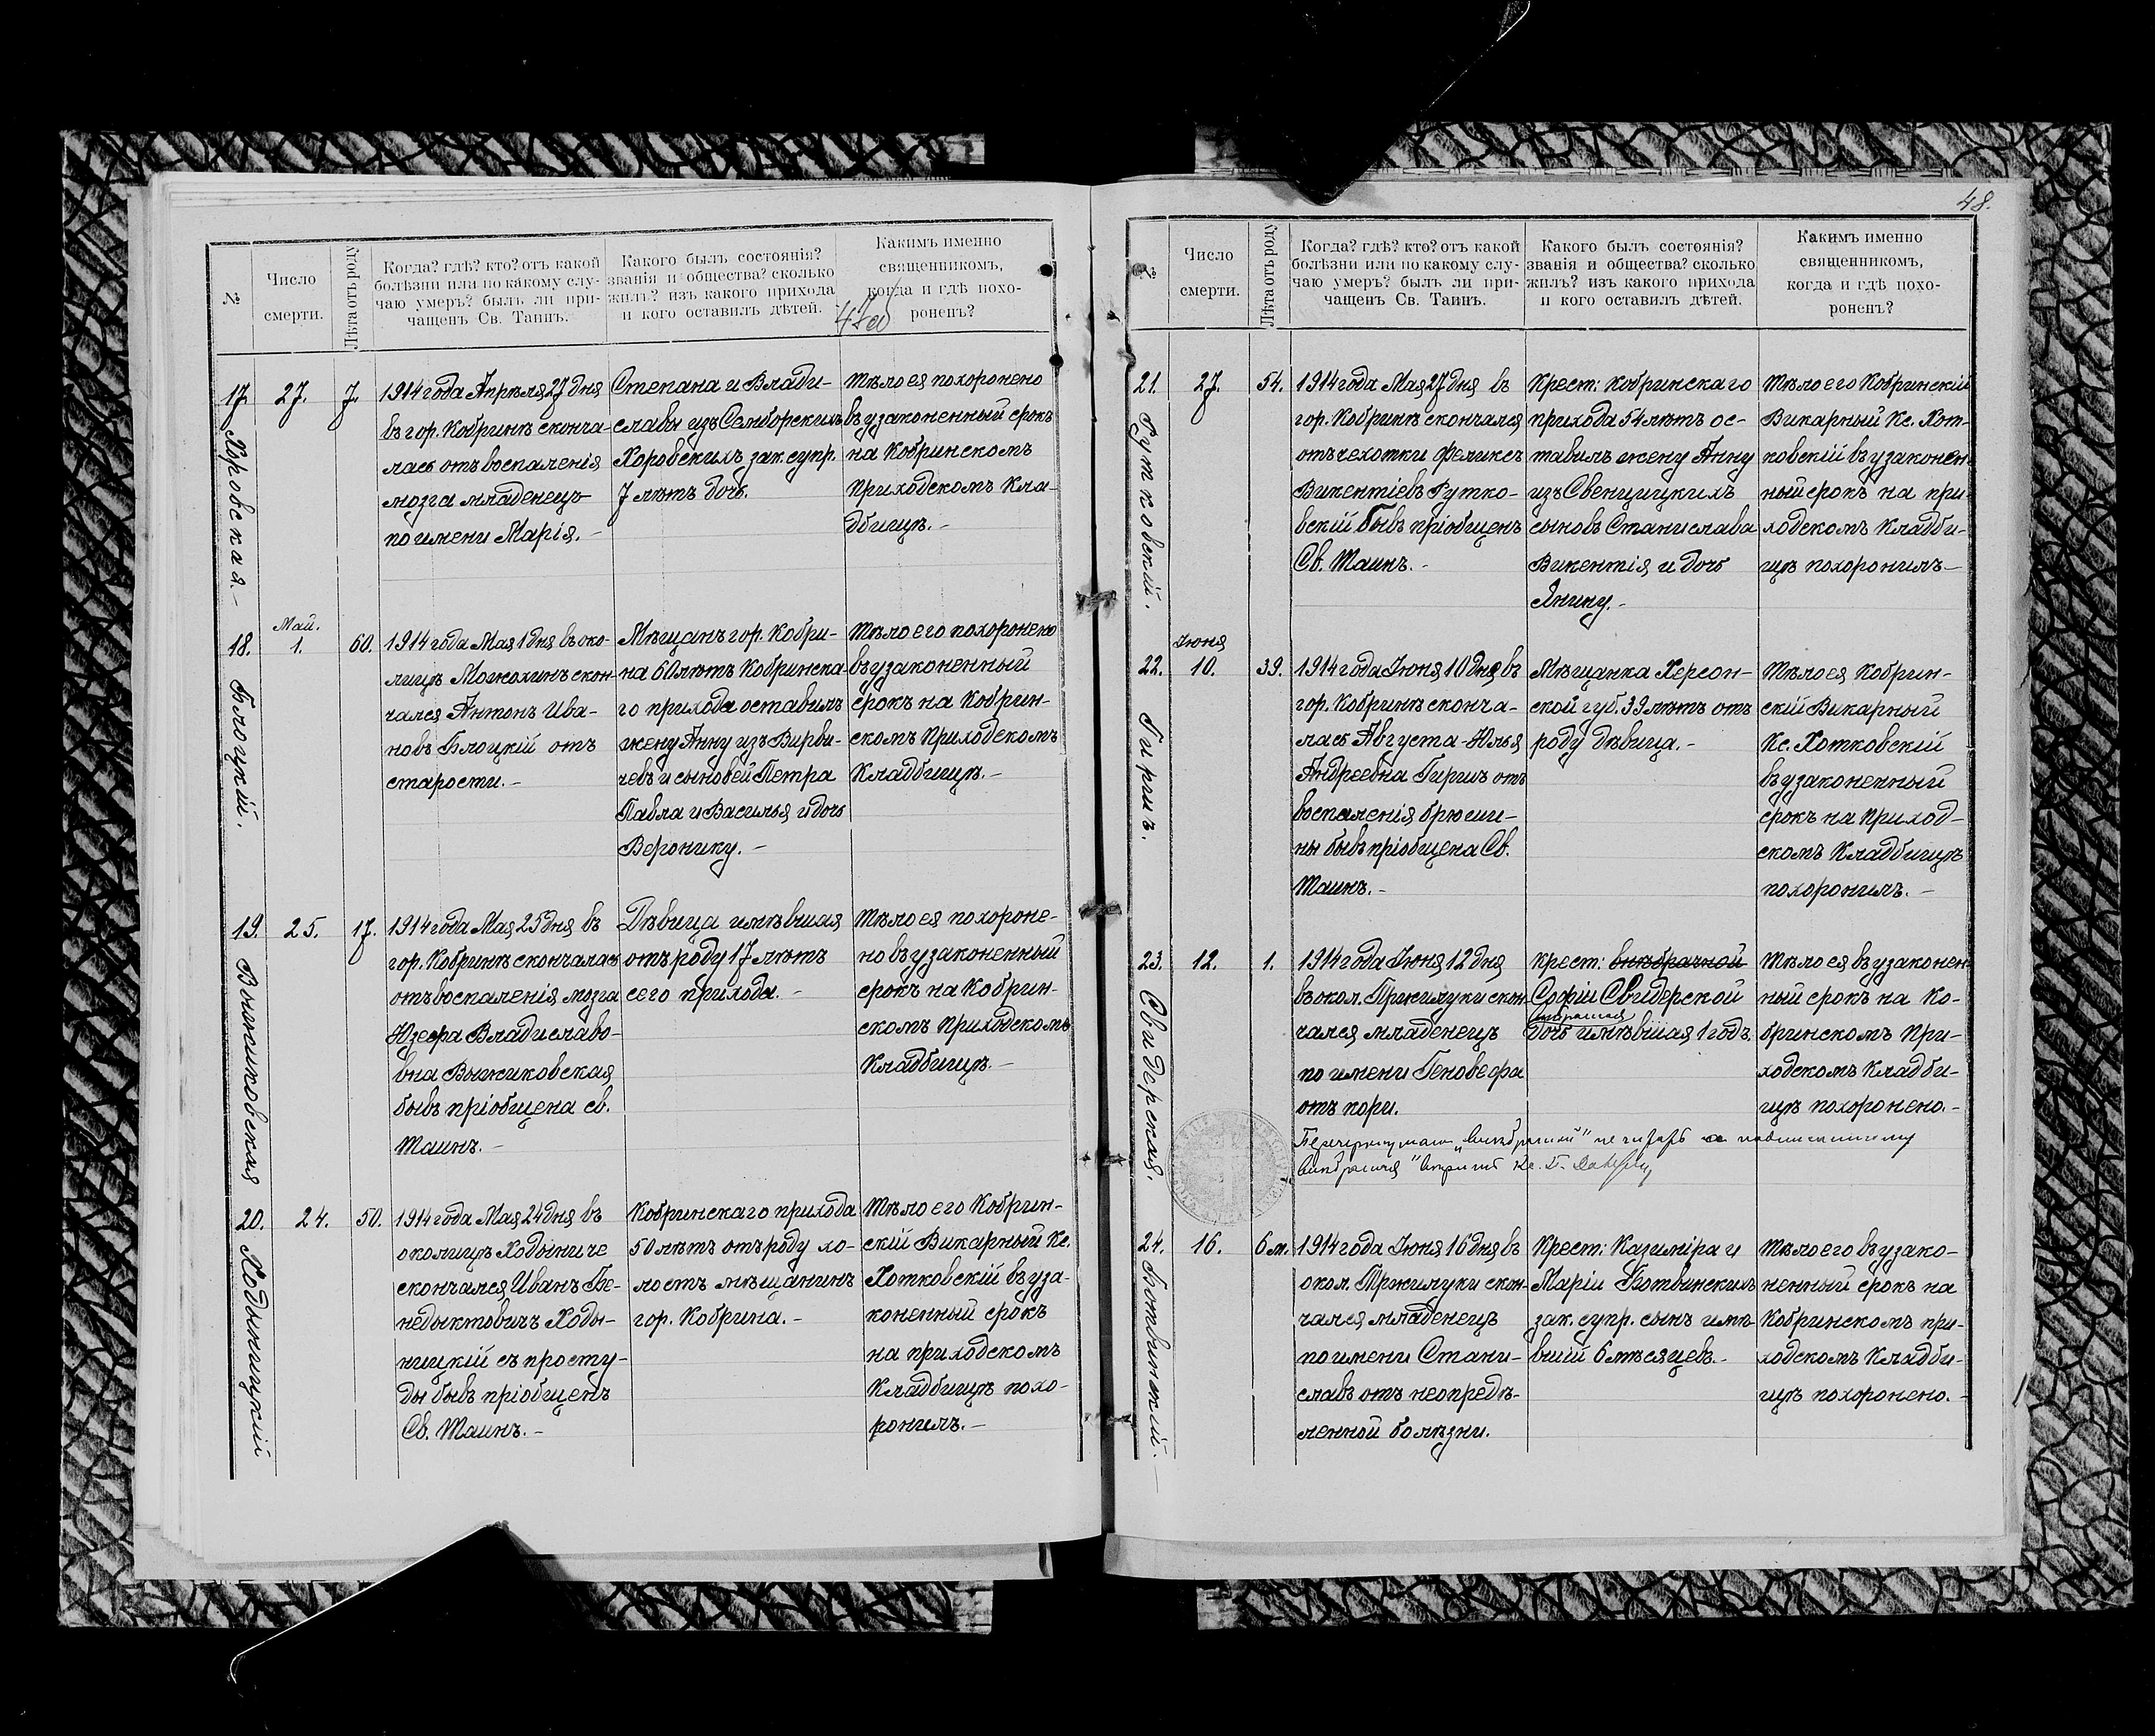 №
Число
смерти.
Лѣта отъ роду
Когда? гдѣ? кто? отъ какой
болѣзни или по какому слу-
чаю умеръ? былъ ли прі-
чащенъ Св. Таинъ.
Какого былъ состоянія?
званія и общества? сколько
жилъ? изъ какого прихода
и кого оставилъ дѣтей.
Какимъ именно
священникомъ,
когда и гдѣ похо-
роненъ?
17.
Хоровская.-
27.
7.
1914 года Апрѣля 27 дня
въ гор. Кобринѣ сконча-
лась отъ воспаленія
мозга младенецъ
по имени Марія.-
Степана и Влади-
славы изъ Самборскихъ
Хоровскихъ зак. супр.
7 лѣтъ дочь.
Тѣло ея похоронено
въ узаконенный срокъ
на Кобринскомъ
Приходскомъ Кла-
дбищѣ.-
18.
Блоцкій.
Май.
1.
60.
1914 года Мая 1 дня въ око-
лицѣ скон-
чался Антонъ Ива-
новъ Блоцкій отъ
старости.-
Мѣщанъ гор. Кобри-
на 60 лѣтъ Кобринска-
го прихода оставилъ
жену Анну изъ Вирви-
чевъ и сыновей Петра
Павла и Василья и дочь
Веронику.-
Тѣло его похоронено
въ узаконенный
срокъ на Кобрин-
скомъ Приходскомъ
Кладбищѣ.-
19.
Выжиковская
25.
17.
1914 года Мая 25 дня въ
гор. Кобринѣ скончалась
отъ воспаленія мозга
Юзефа Владиславо-
вна Выжиковская
бывъ пріобщена св.
Таинъ.-
Дѣвица имѣвшая
отъ роду 17 лѣтъ
сего прихода.-
Тѣло ея похороне-
но въ узаконенный
срокъ на Кобрин-
скомъ Приходскомъ
Кладбищѣ.-
20.
Ходыницкій
24.
50.
1914 года Мая 24 дня въ
околицѣ Ходыниче
скончался Иванъ Бе-
недыктовичъ Ходы-
ницкій съ просту-
ды бывъ пріобщенъ
Св. Таинъ.-
Кобринскаго прихода
50 лѣтъ отъ роду хо-
лостъ мѣщанинъ
гор. Кобрина.-
Тѣло его Кобрин-
скій Викарный Кс.
Хотковскій въ уза-
коненный срокъ
на приходскомъ
Кладбищѣ похо-
ронилъ.-
48.
№
Число
смерти.
Лѣта отъ роду
Когда? гдѣ? кто? отъ какой
болѣзни или по какому слу-
чаю умеръ? былъ ли прі-
чащенъ Св. Таинъ.
Какого былъ состоянія?
званія и общества? сколько
жилъ? изъ какого прихода
и кого оставилъ дѣтей.
Какимъ именно
священникомъ,
когда и гдѣ похо-
роненъ?
21.
Рутковскій.
27.
54.
1914 года Мая 27 дня въ
гор. Кобринѣ скончался
отъ чехотки Феликсъ
Викентіевъ Рутко-
вскій бывъ пріобщенъ
Св. Таинъ.-
Крест: Кобринскаго
прихода 54 лѣтъ ос-
тавилъ жену Анну
изъ Свенцицкихъ
сыновъ Станислава
Викентія и дочь
Янину.-
Тѣло его Кобринскій
Викарный Кс. Хот-
ковскій въ узаконен-
ный срокъ на при-
ходскомъ Кладби-
щѣ похоронилъ-
22.
Гиршъ.
Іюня
10.
39.
1914 года Іюня 10 дня въ
гор. Кобринѣ сконча-
лась Августа-Юлья
Андреевна Гиршъ отъ
воспаленія брюши-
ны бывъ пріобщена Св.
Таинъ.-
Мѣщанка Херсон-
ской губ. 39 лѣтъ отъ
роду дѣвица.-
Тѣло ея Кобрин-
скій Викарный
Кс. Хотковскій
въ узаконенный
срокъ на Приход-
скомъ Кладбищѣ
похоронилъ.-
23.
Свидерская.
12.
1.
1914 года Іюня 12 дня
въ окол. Пржилуки скон-
чался младенецъ
по имени Геновефа
отъ кори.
Крест: внѣбрачной
Софіи Свидерской
внѣбрачная
дочь имѣвшая 1 годъ.
Тѣло ея въ узаконен-
ный срокъ на Ко-
бринскомъ При-
ходскомъ Кладби-
щѣ похоронено.-
"внѣбрачной" не читать а
внѣбрачная" вѣрить Кс.
24.
Ботвинскій.-
16.
6 м.
1914 года Іюня 16 дня въ
окол. Пржилуки скон-
чался младенецъ
по имени Стани-
славъ отъ неопредѣ-
ленной болѣзни.
Крест: Казиміра и
Маріи Ботвинскихъ
зак. супр. сынъ имѣ-
вшій 6 мѣсяцевъ.-
Тѣло его въ узако-
ненный срокъ на
Кобринскомъ при-
ходскомъ Кладби-
щѣ похоронено.-